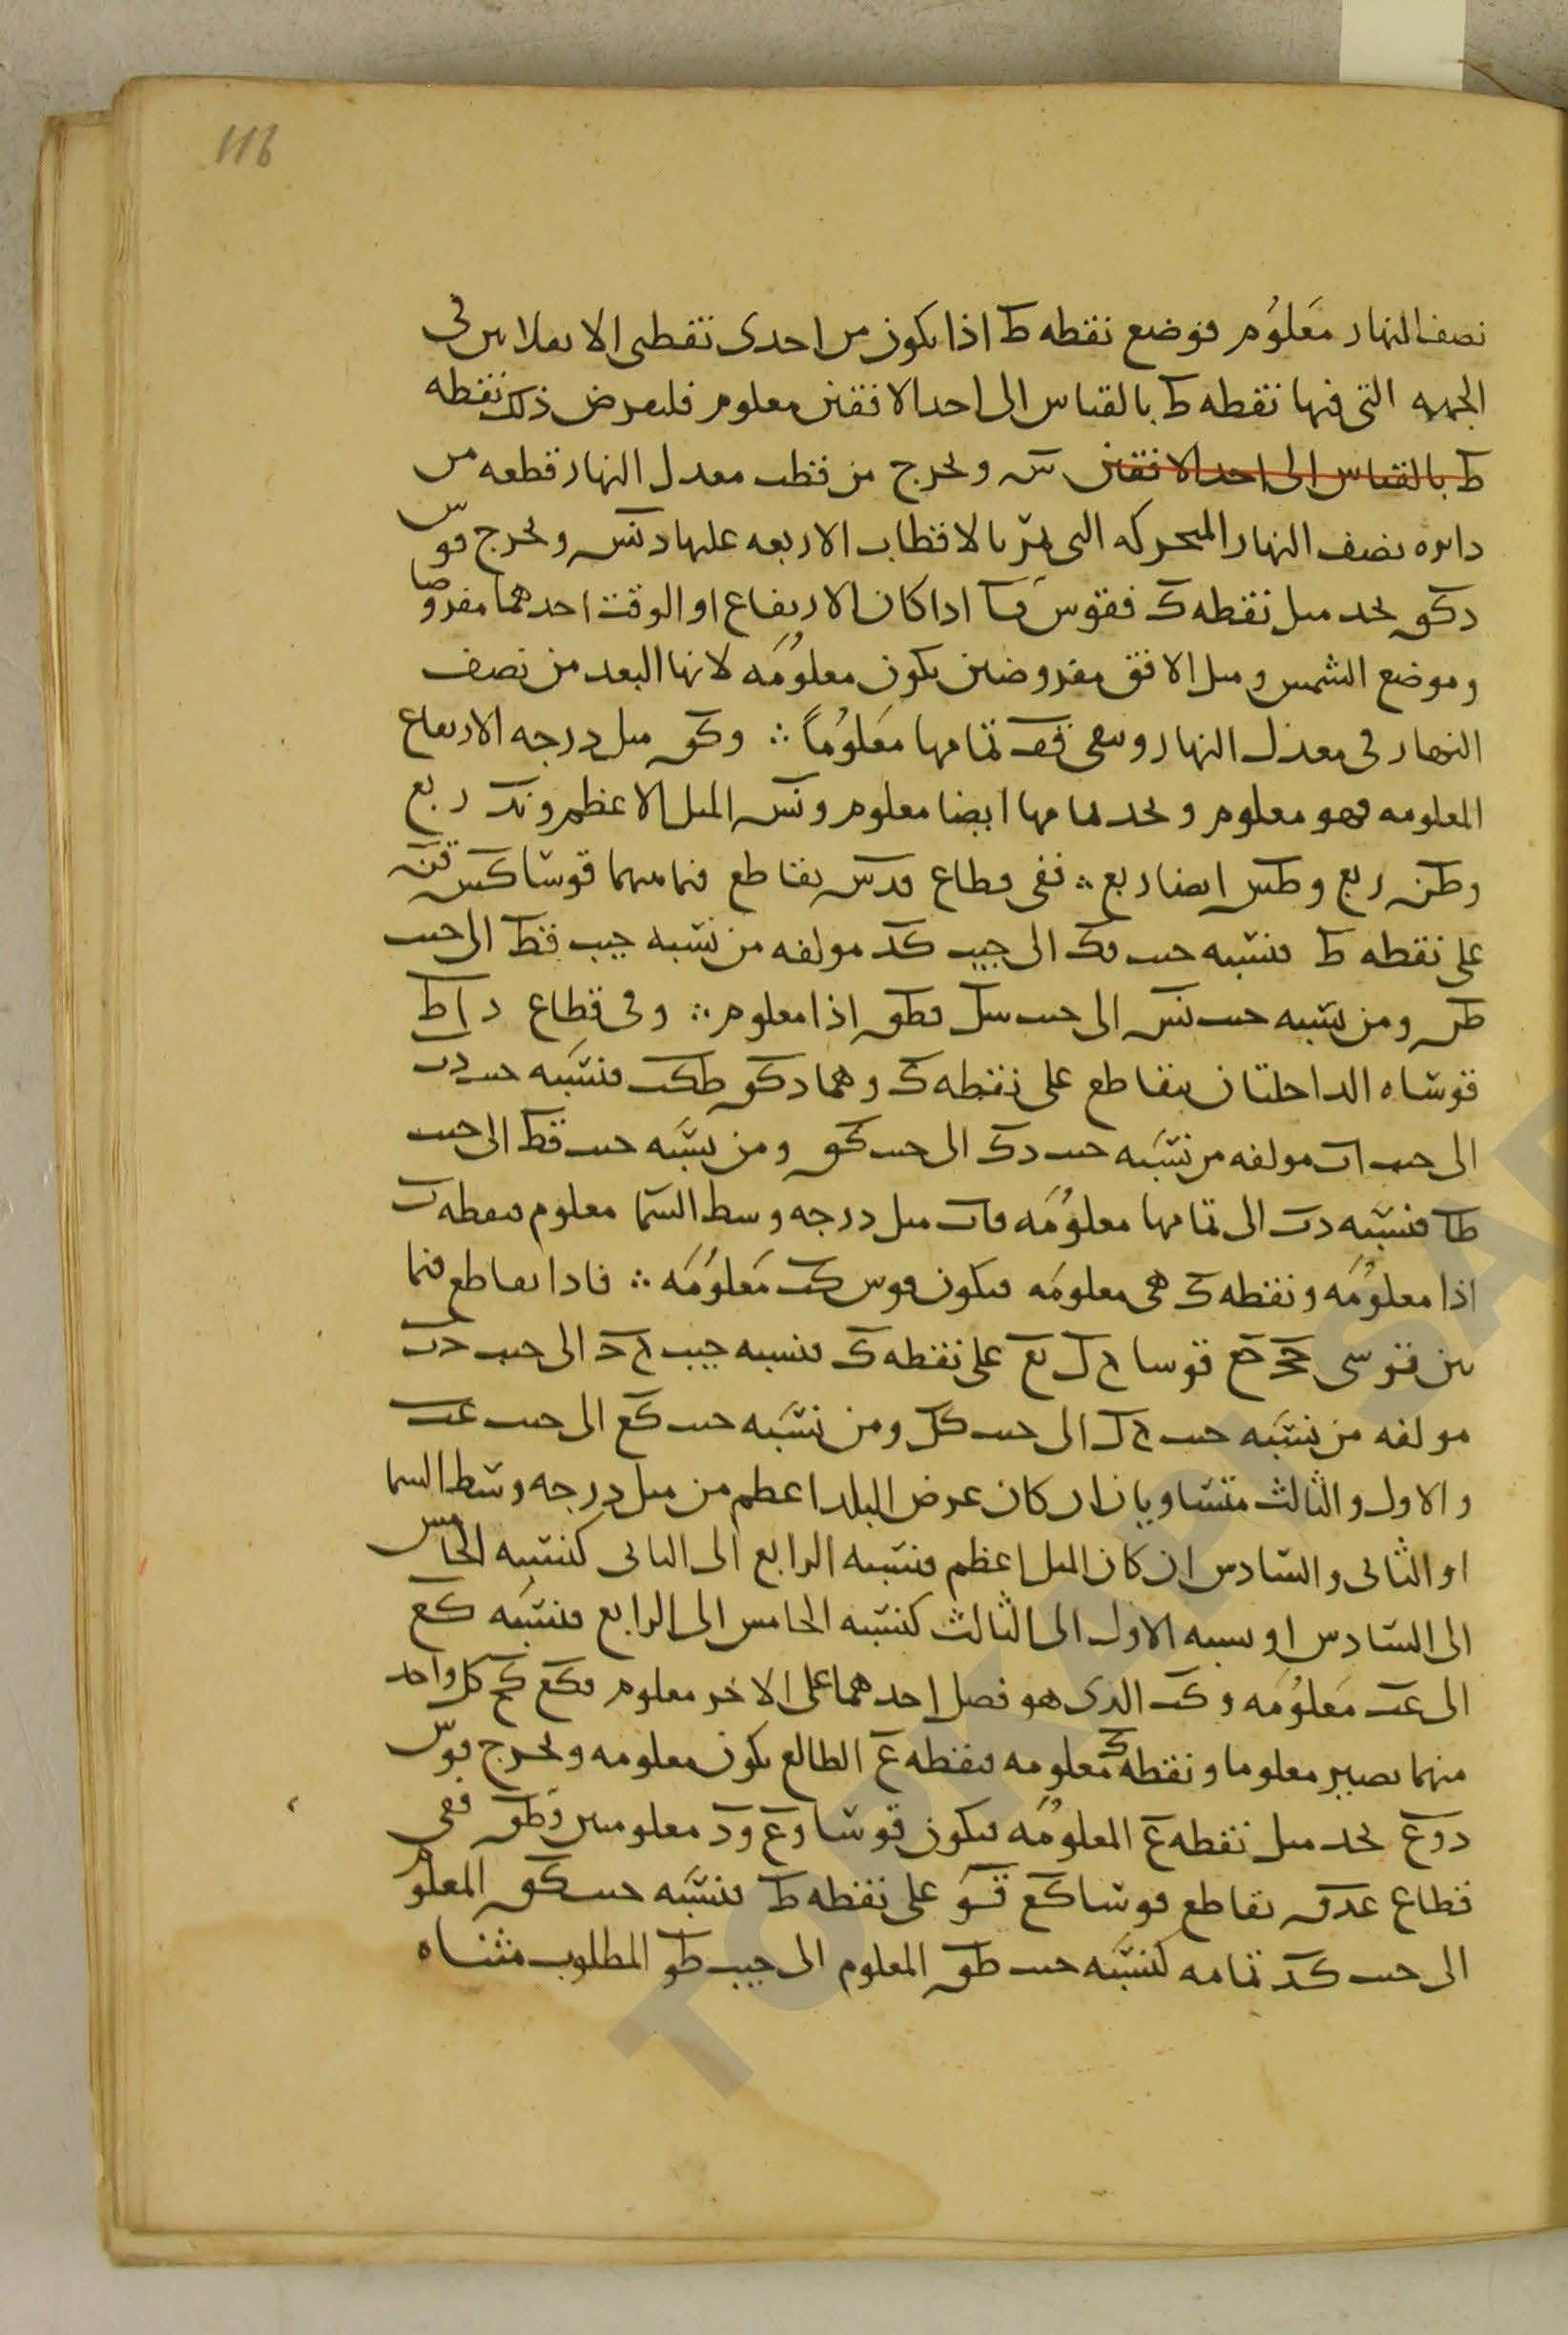 116
نصف النهار معلوم فوضع نقطه ط اذا يكون من احدى نقطتي الانقلابين في
الجهه التي فيها نقطه ط بالقياس الى احد الافقين معلوم فليعرض ذلك نقطه
ط بالقياس الى احد الافقين س ونخرج من قطب معدل النهار قطعه من
دايره نصف النهار المتحركه التي تمر بالاقطاب الاربعه عليها دنس ونخرج قوس
دكو لحد ميل نقطه ك فقوس اذا كان الارتفاع او الوقت احدهما مفروضا
وموضع الشمس وميل الافق مفروضين يكون معلومه لانها البعد من نصف
النهار في معدل النهار وبقى تمامها معلوما ∴ وكو ميل درجه الارتفاع
المعلومه فهو معلوم ونجد تمامها ايضا معلوم ونس الميل الاعظم وند ربع
وطن ربع وطس ايضا ربع ∴ ففي قطاع تقاطع فيما بينهما قوسا
على نقطه ط فنسبه جيب الى جيب كد مولفه من نسبه جيب قط الى جيب
ومن نسبه جيب نس الى جيب اذا معلوم ∴ وفي قطاع د ا ط
قوساه الداخلتان يتقاطع على نقطه ك وهما دكو طكب فنسبه جيب دب
الى جيب اب مولفه من نسبه جيب دك الى جيب كو ومن نسبه جيب قط الى جيب
طا فنسبه دب الى تمامها معلومه فاب ميل درجه وسط السما معلوم فنقطه ب
اذا معلومه ونقطه ك هي معلومه فيكون قوس كب معلومه ∴ فاذا تقاطع فيما
بين قوسي قوسا ح ل بع على نقطه ك فنسبه جيب ح د الى جيب
مولفه من نسبه جيب ح ل الى جيب كل ومن نسبه جيب كع الى جيب عب
والاول والثالث متساويان ان كان عرض البلد اعظم من ميل درجه وسط السما
او الثاني والسادس ان كان الميل اعظم فنسبه الرابع الى الثاني كنسبه الخامس
الى السادس او نسبه الاول الى الثالث كنسبه الخامس الى الرابع فنسبه كع
الى عب معلومه وكب الذي هو فصل احدهما على الاخر معلوم فكع كل واحد
منهما يصير معلوما ونقطه ك معلومه فنقطه ع الطالع يكون معلومه ونخرج قوس
دوع لحد ميل نقطه ع المعلومه فيكون قوسا وع ود معلومين وطو ففي
قطاع تقاطع قوسا كع على نقطه ط فنسبه جيب كو المعلوم
الى جيب كد تمامه كنسبه جيب المعلوم الى جيب طو المطلوب مثناه
TOPKAPI SA